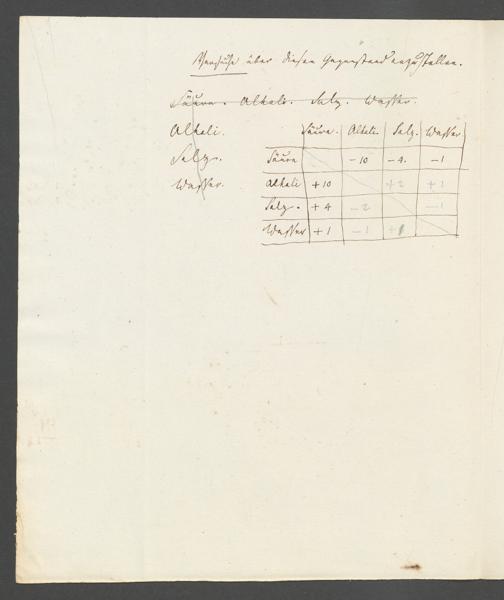 Versuche über diesen Gegenstand anzustellen.
Säure. Alkali. Salz. Wasser.
Alkali.
Salz.
Wasser.
Säure. Alkali. Salz. Wasser
Säure -10 -4. -1
Alkali +10 +2 +1
Salz. +4 -2 -1
Wasser +1 -1 +1